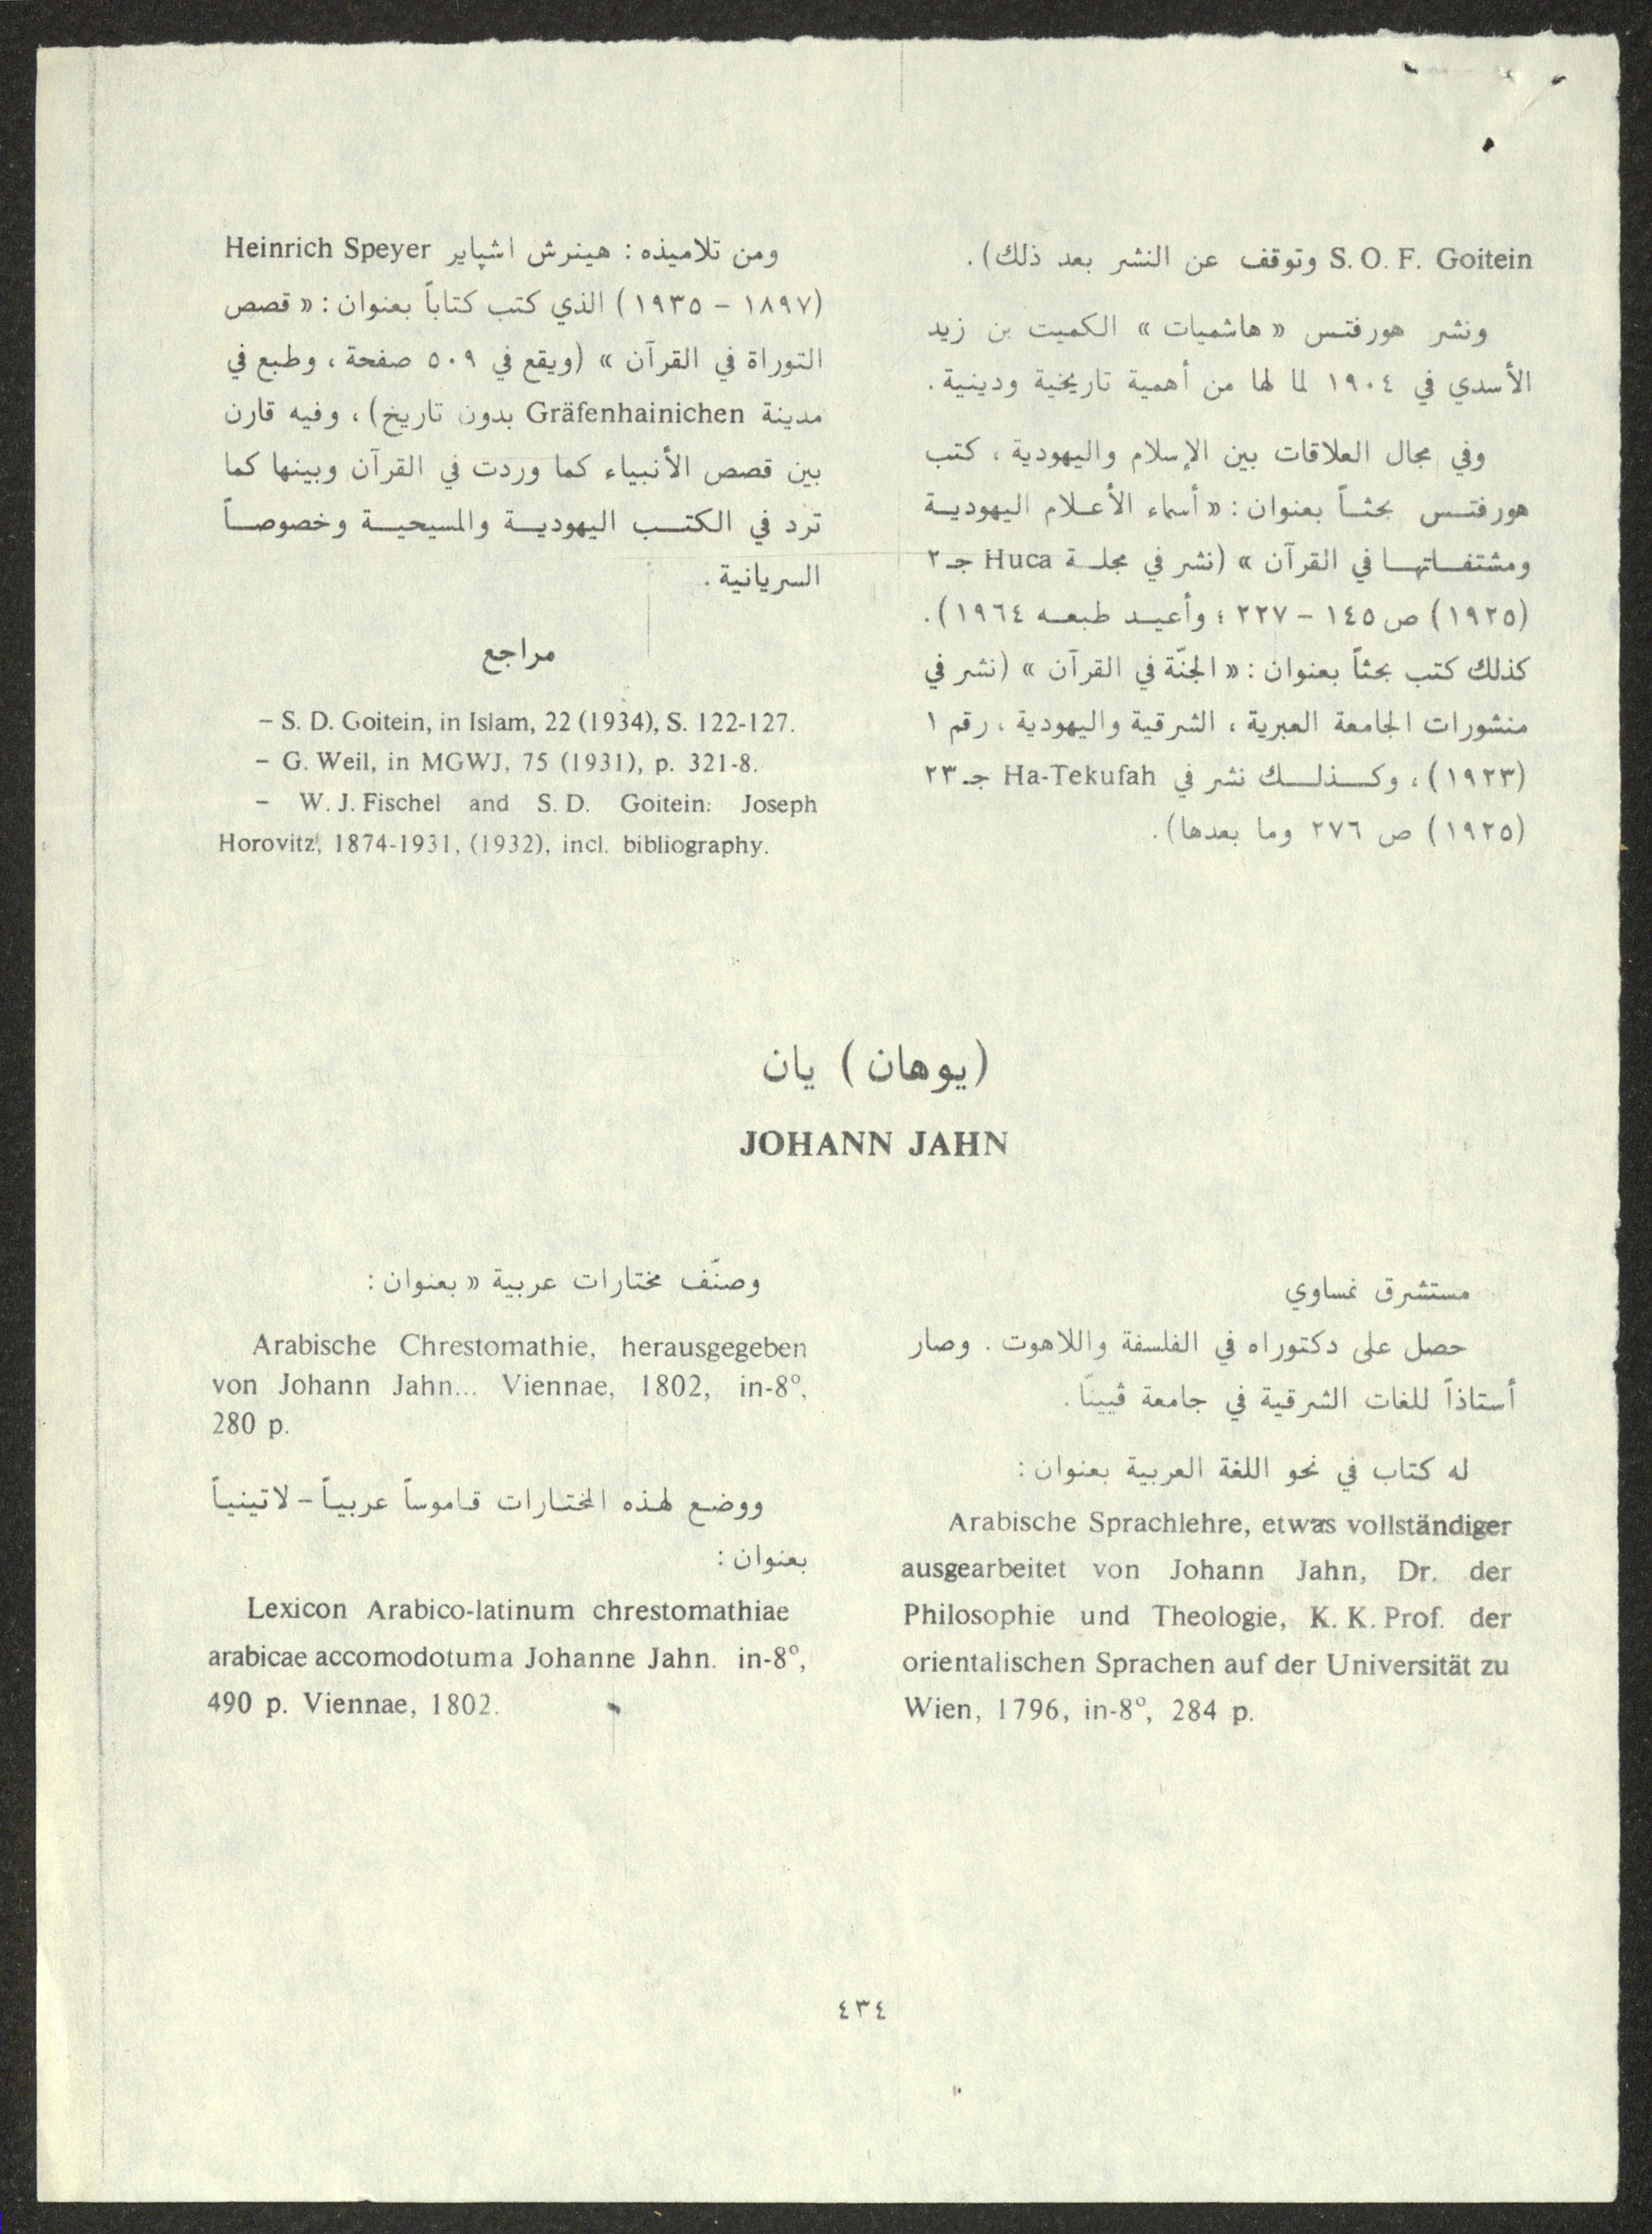 S. O. F. Goitein وتوقف عن النشر بعد ذلك).
ونشر هورفتس « هاشميات » الكميت بن زيد
الأسدي في ١٩٠٤ لما لها من أهمية تاريخية ودينية.
وفي مجال العلاقات بين الإسلام واليهودية، كتب
هورفتس بحثاً بعنوان: « أسماء الأعلام اليهودية
ومشتقاتها في القرآن » (نشر في مجلة Huca جـ ٢
(١٩٢٥) ص ١٤٥ – ٢٢٧؛ وأعيد طبعه ١٩٦٤).
كذلك كتب بحثاً بعنوان: « الجنّة في القرآن » (نشر في
منشورات الجامعة العبرية، الشرقية واليهودية، رقم ١
(١٩٢٣)، وكذلك نشر في Ha-Tekufah جـ ٢٣
(١٩٢٥) ص ٢٧٦ وما بعدها).
ومن تلاميذه: هينرش اشپاير Heinrich Speyer
(١٨٩٧ – ١٩٣٥) الذي كتب كتاباً بعنوان: « قصص
التوراة في القرآن » (ويقع في ٥٠٩ صفحة، وطبع في
مدينة Gräfenhainichen بدون تاريخ)، وفيه قارن
بين قصص الأنبياء كما وردت في القرآن وبينها كما
ترد في الكتب اليهودية والمسيحية وخصوصاً
السريانية.
مراجع
– S. D. Goitein, in Islam, 22 (1934), S. 122-127.
– G. Weil, in MGWJ, 75 (1931), p. 321-8.
– W. J. Fischel and S. D. Goitein: Joseph
Horovitz, 1874-1931, (1932), incl. bibliography.
(يوهان) يان
JOHANN JAHN
مستشرق نمساوي
حصل على دكتوراه في الفلسفة واللاهوت. وصار
أستاذاً للغات الشرقية في جامعة ڤيينّا.
له كتاب في نحو اللغة العربية بعنوان:
Arabische Sprachlehre, etwas vollständiger
ausgearbeitet von Johann Jahn, Dr. der
Philosophie und Theologie, K. K. Prof. der
orientalischen Sprachen auf der Universität zu
Wien, 1796, in-8°, 284 p.
وصنّف مختارات عربية « بعنوان:
Arabische Chrestomathie, herausgegeben
von Johann Jahn... Viennae, 1802, in-8°,
280 p.
ووضع لهذه المختارات قاموساً عربياً – لاتينياً
بعنوان:
Lexicon Arabico-latinum chrestomathiae
arabicae accomodotuma Johanne Jahn. in-8°,
490 p. Viennae, 1802.
٤٣٤